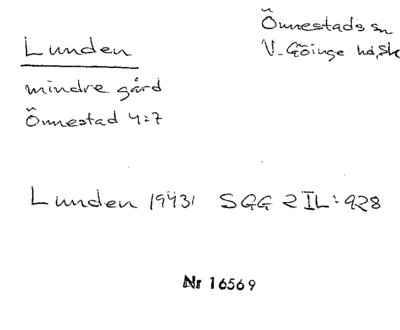 Lunden
Önnestads sn
V-Göinge hd, Sk
mindre gård
Önnestad 4:7
Lunden 1943 SGG 2 IL: 928
Nr 16569